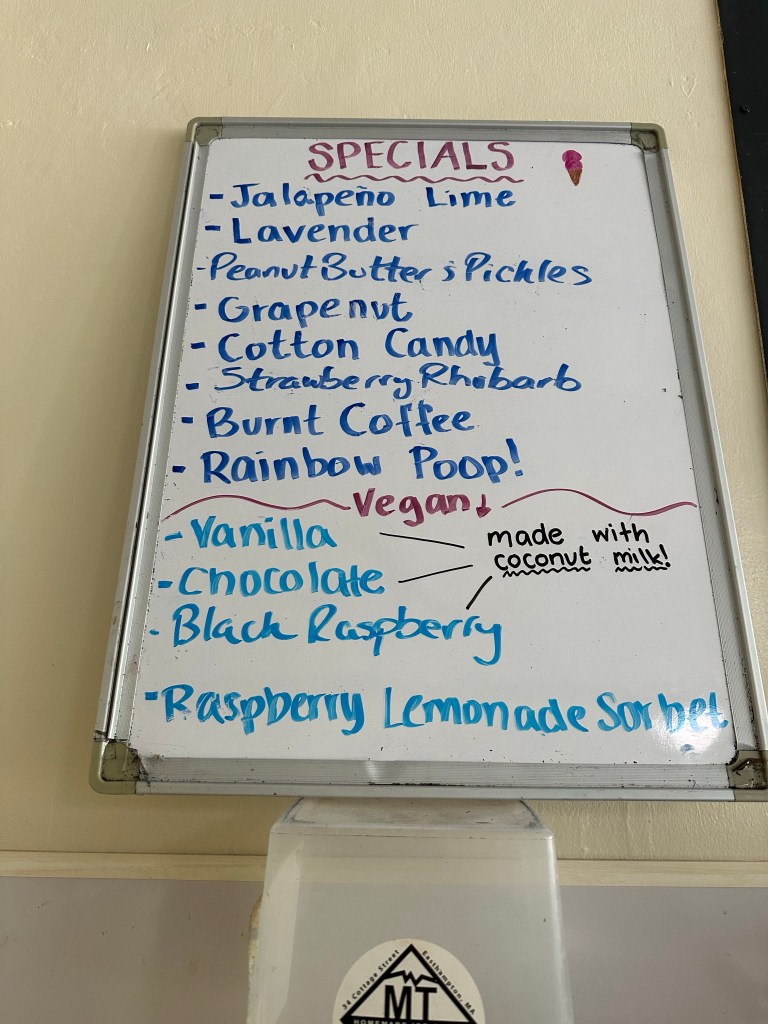 SPECIALS
- Jalapeño Lime
- Lavender
- Peanut Butter & Pickles
- Grapenut
- Cotton Candy
- Strawberry Rhubarb
- Burnt Coffee
- Rainbow Poop!
Vegan ↓
- Vanilla
- Chocolate
- Black Raspberry
made with
coconut milk!
- Raspberry Lemonade Sorbet
34 Cottage Street
Easthampton, MA.
MT
HOMEMADE